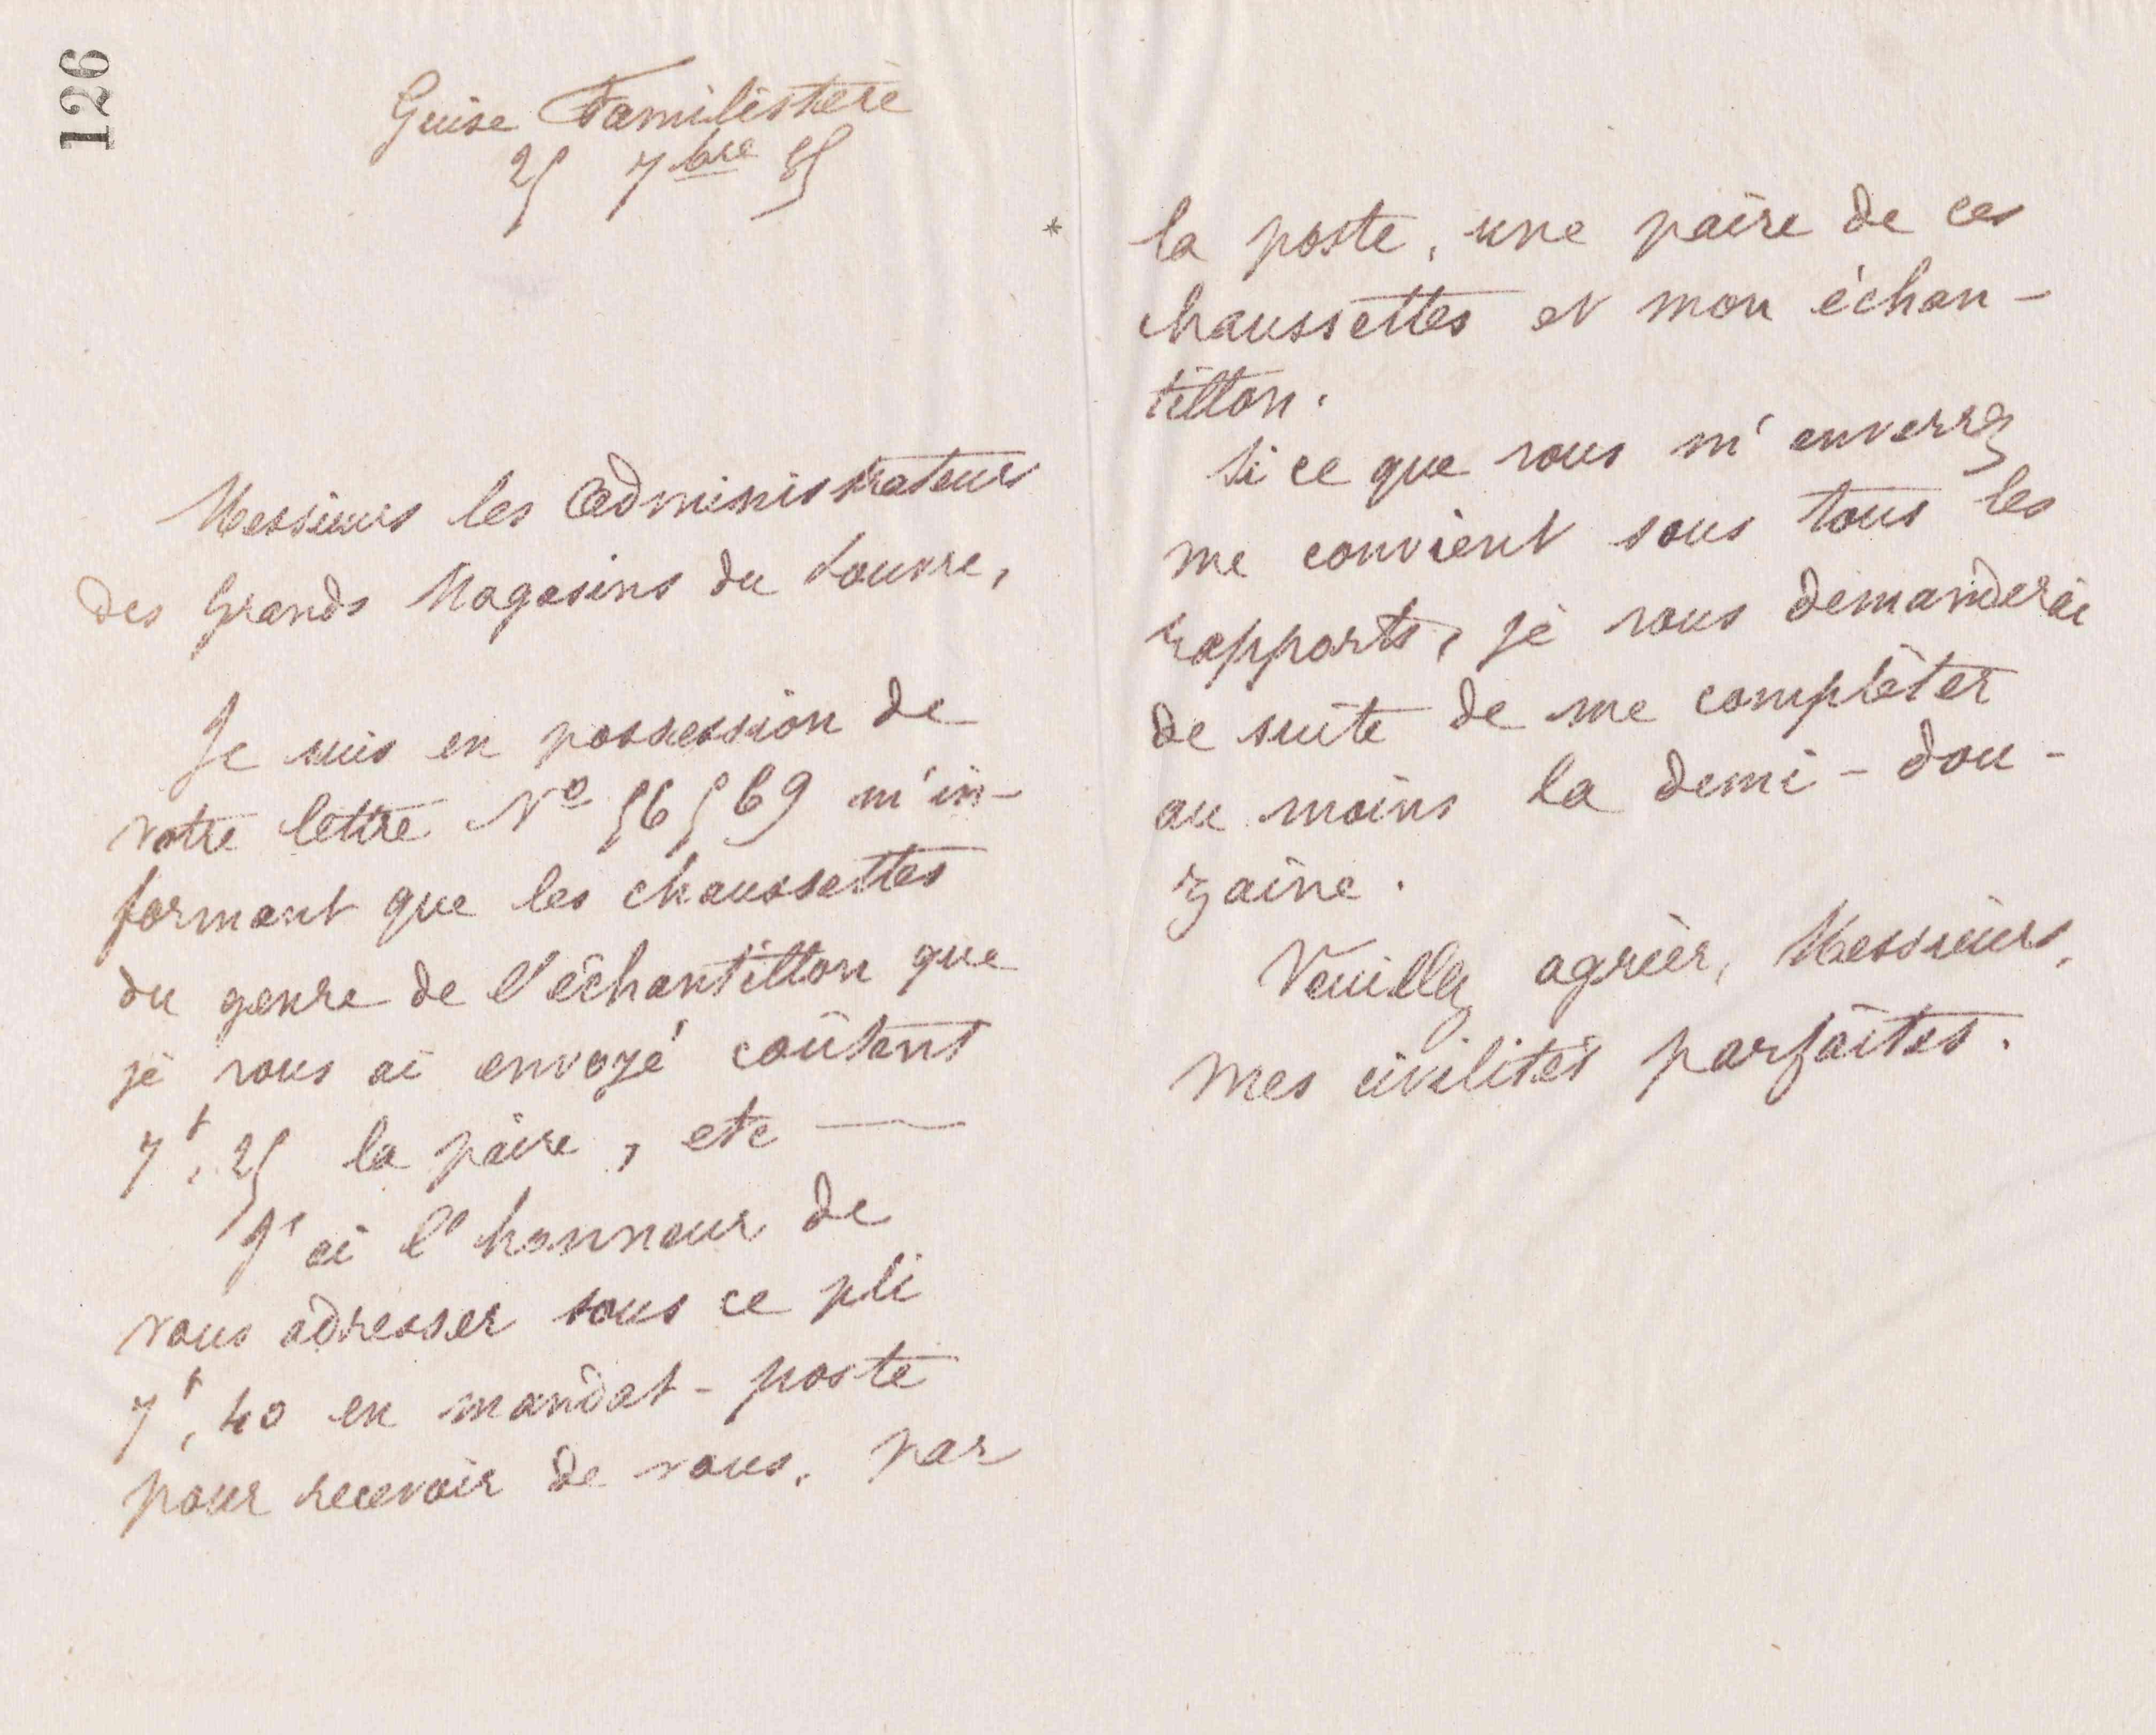 126
Guise Familistère
25 7bre 85
Messieurs les Administrateurs
des Grands Magasins du Louvre,
Je suis en possession de
votre lettre No 56569 m'in-
formant que les chaussettes
du genre de l'échantillon que
je vous ai envoyé coûtent
7f, 25 la paire, etc —
J'ai l'honneur de
vous adresser sous ce pli
7f, 40 en mandat-poste
pour recevoir de vous, par
la poste, une paire de ces
chaussettes et mon échan-
tillon.
Si ce que vous m'enverrez
me convient sous tous les
rapports, je vous demanderai
de suite de me compléter
au moins la demi-dou-
zaine.
Veuillez agréer, Messieurs,
mes civilités parfaites.